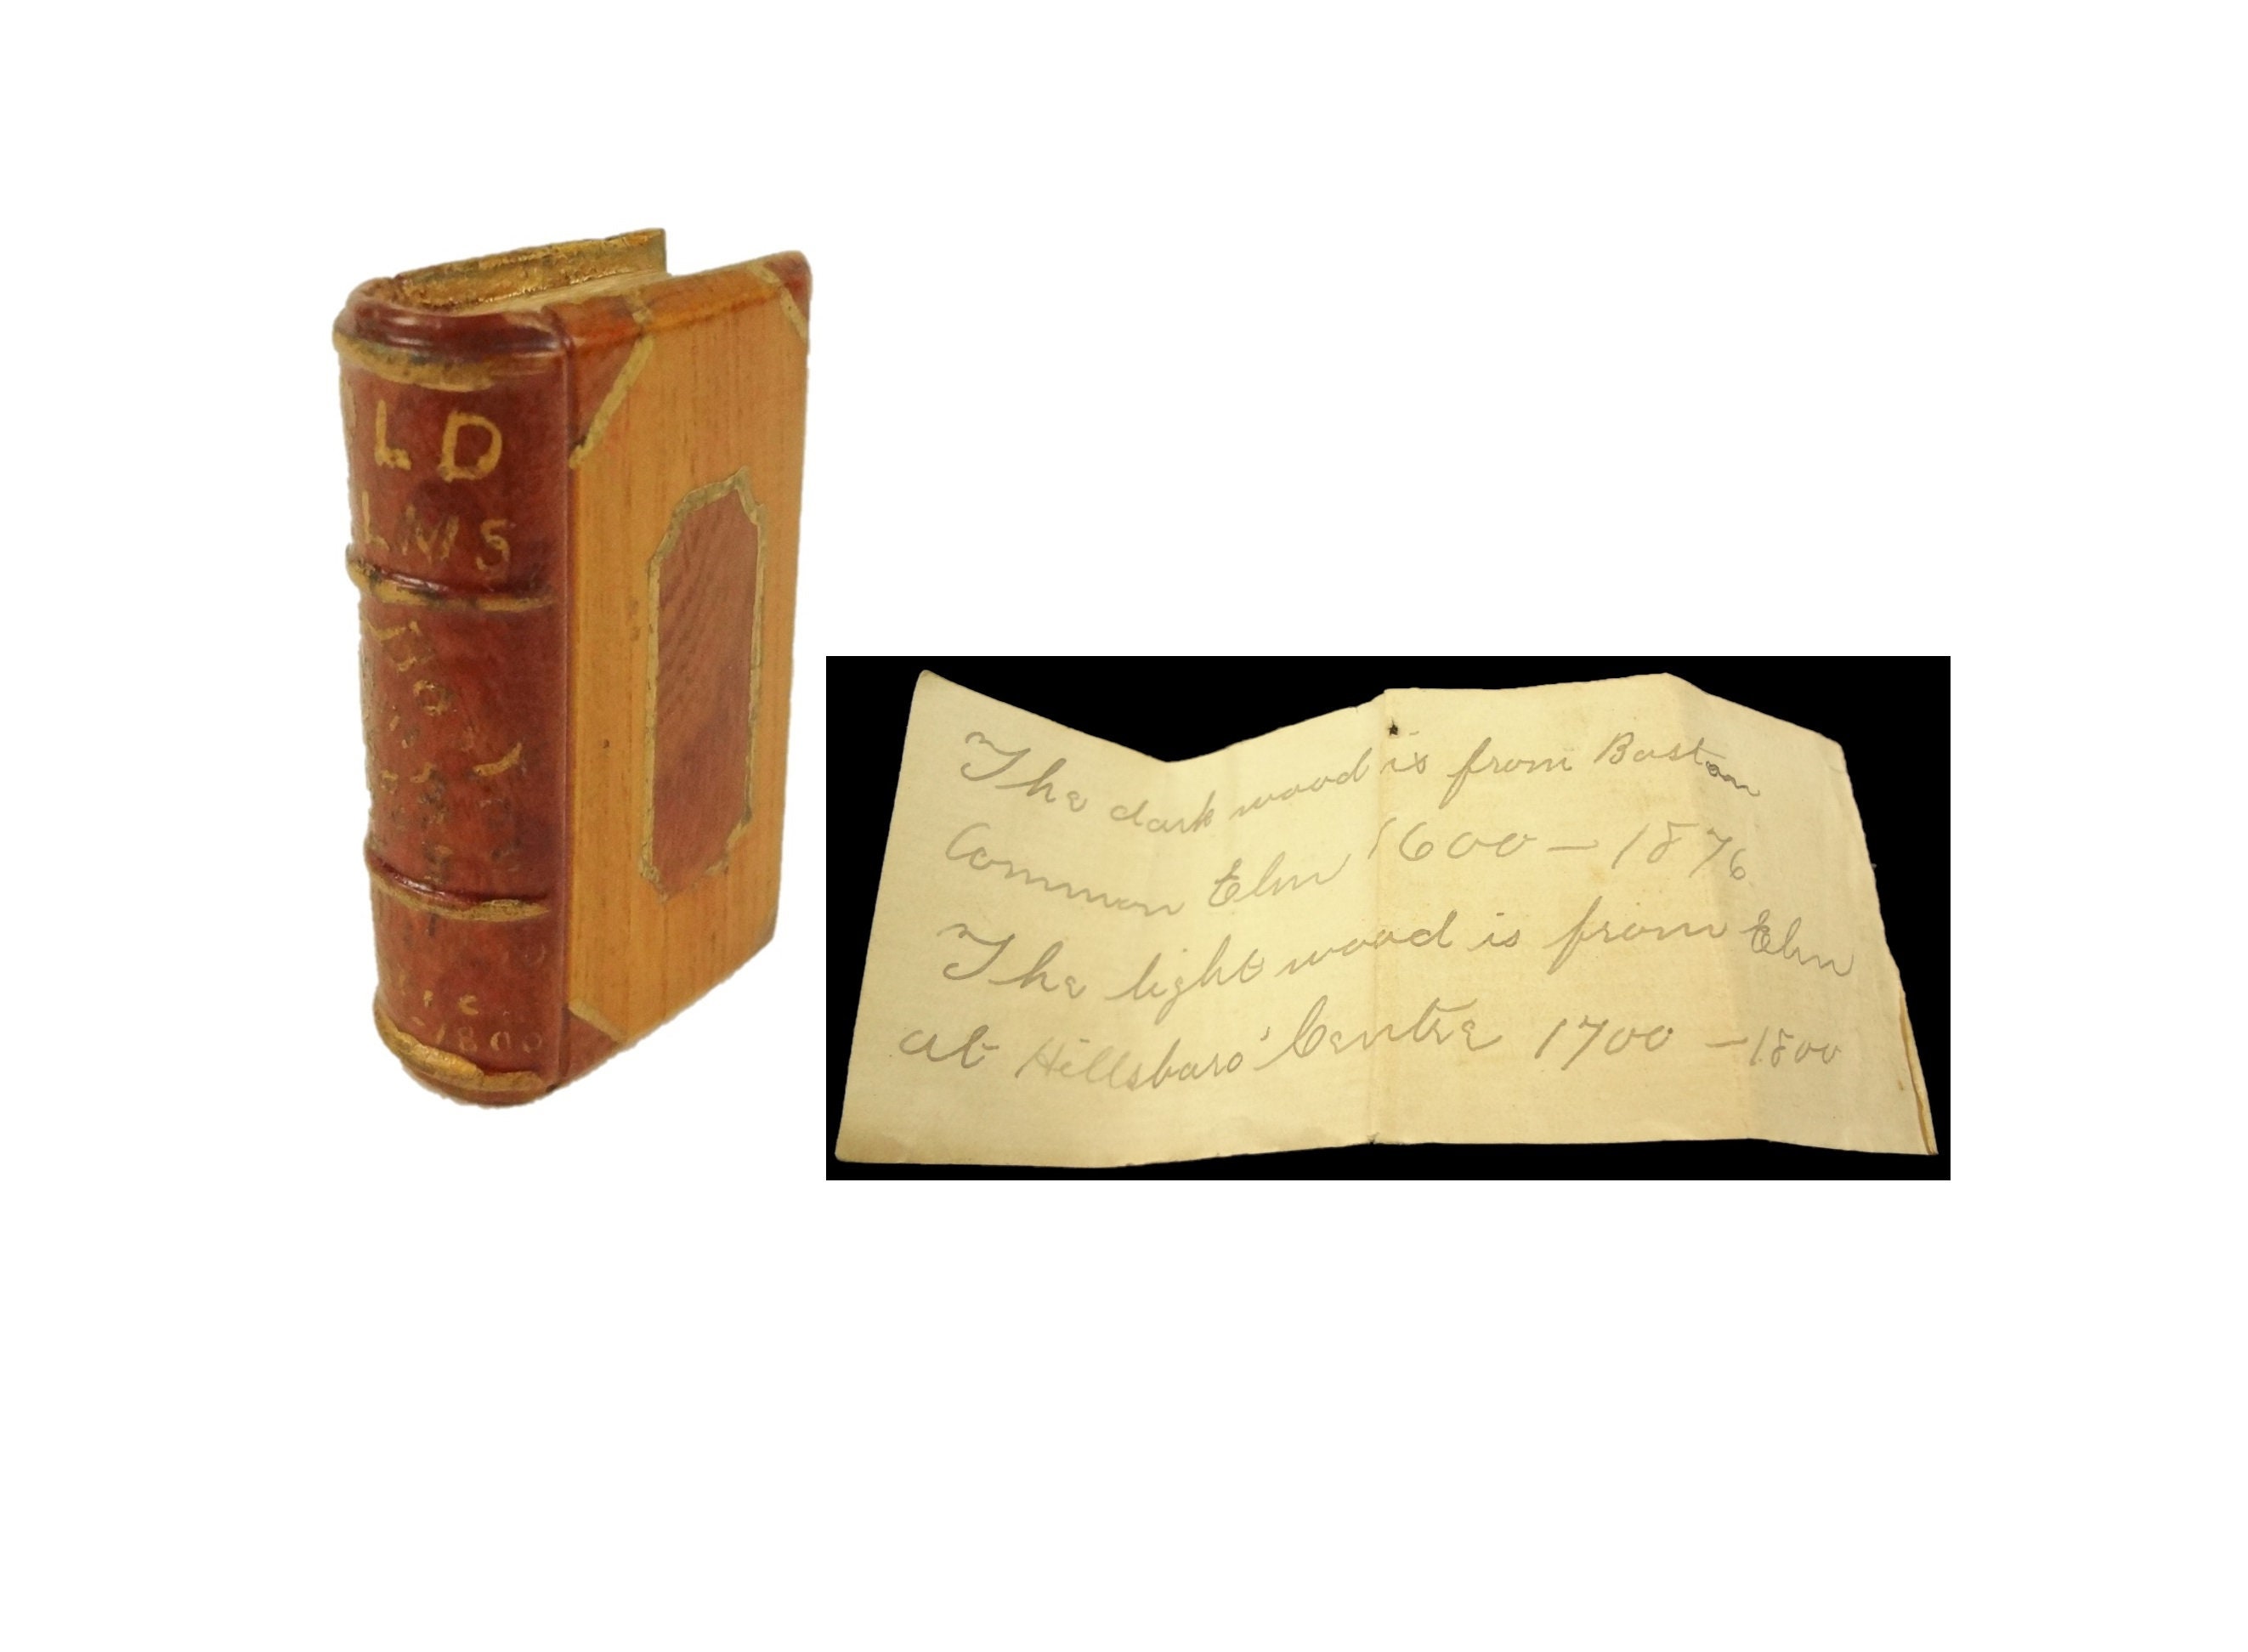 LD
LMS
1800
The dark wood is from Boston
Common Elm 1600 – 1876
The light wood is from Elm
at Hillsboro' Centre 1700 – 1800